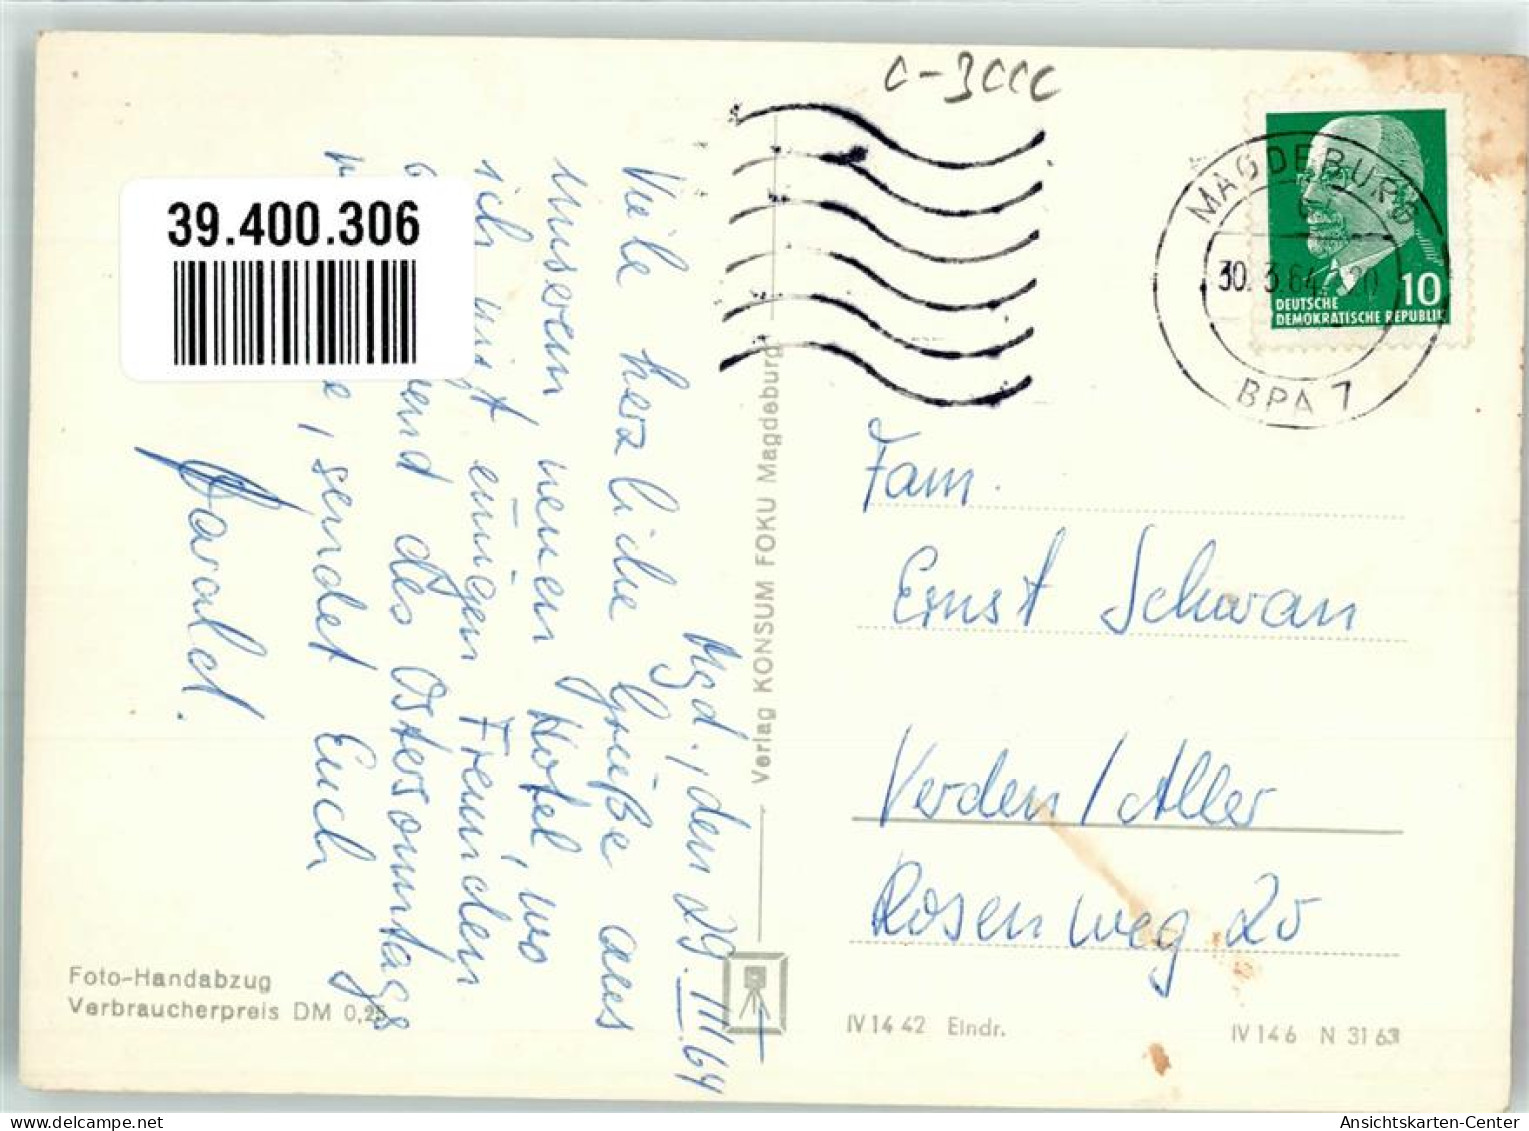 c-3ccc
39.400.306
MAGDEBURG
30.3.64.
BPA 7
10
DEUTSCHE
DEMOKRATISCHE REPUBLIK
Mgd., den 29.III.64
Viele herzliche Grüße aus
unserem neuen Hotel, wo
ich mit einigen Freunden
des Ostersonntags
sendet Euch
Harald.
Verlag KONSUM FOKU Magdeburg
Fam.
Ernst Schwan
Verden/Aller
Rosenweg 20
Foto-Handabzug
Verbraucherpreis DM 0,25
IV 14 42 Eindr.
IV 146 N 31 63
Ansichtskarten-Center